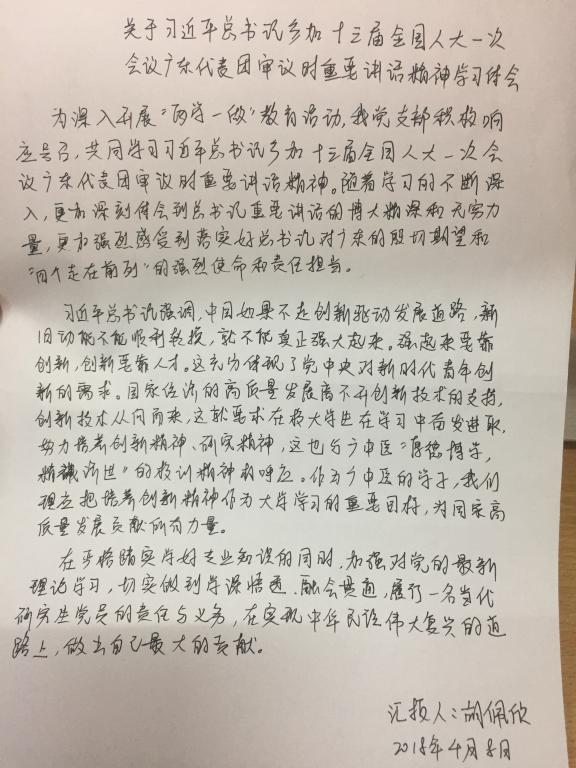 关于习近平总书记参加十三届全国人大一次
会议广东代表团审议时重要讲话精神学习体会
为深入开展“两学一做”教育活动,我党支部积极响
应号召,共同学习习近平总书记参加十三届全国人大一次会
议广东代表团审议时重要讲话精神。随着学习的不断深
入,更加深刻体会到总书记重要讲话的博大精深和无穷力
量,更加强烈感受到落实好总书记对广东的殷切期望和
“四个走在前列”的强烈使命和责任担当。
习近平总书记强调,中国如果不走创新驱动发展道路,新
旧动能不能顺利转换,就不能真正强大起来。强起来要靠
创新,创新要靠人才。这充分体现了党中央对新时代青年创
新的需求。国家经济的高质量发展离不开创新技术的支持,
创新技术从何而来,这就要求在校大学生在学习中奋发进取,
努力培养创新精神、研究精神,这也与广中医“厚德博学,
精诚济世”的校训精神相呼应。作为广中医的学子,我们
理应把培养创新精神作为大学学习的重要目标,为国家高
质量发展贡献所有力量。
在严格踏实学好专业知识的同时,加强对党的最新
理论学习,切实做到学深悟透、融会贯通,履行一名当代
研究生党员的责任与义务,在实现中华民族伟大复兴的道
路上,做出自己最大的贡献。
汇报人:胡佩欣
2018年4月8日